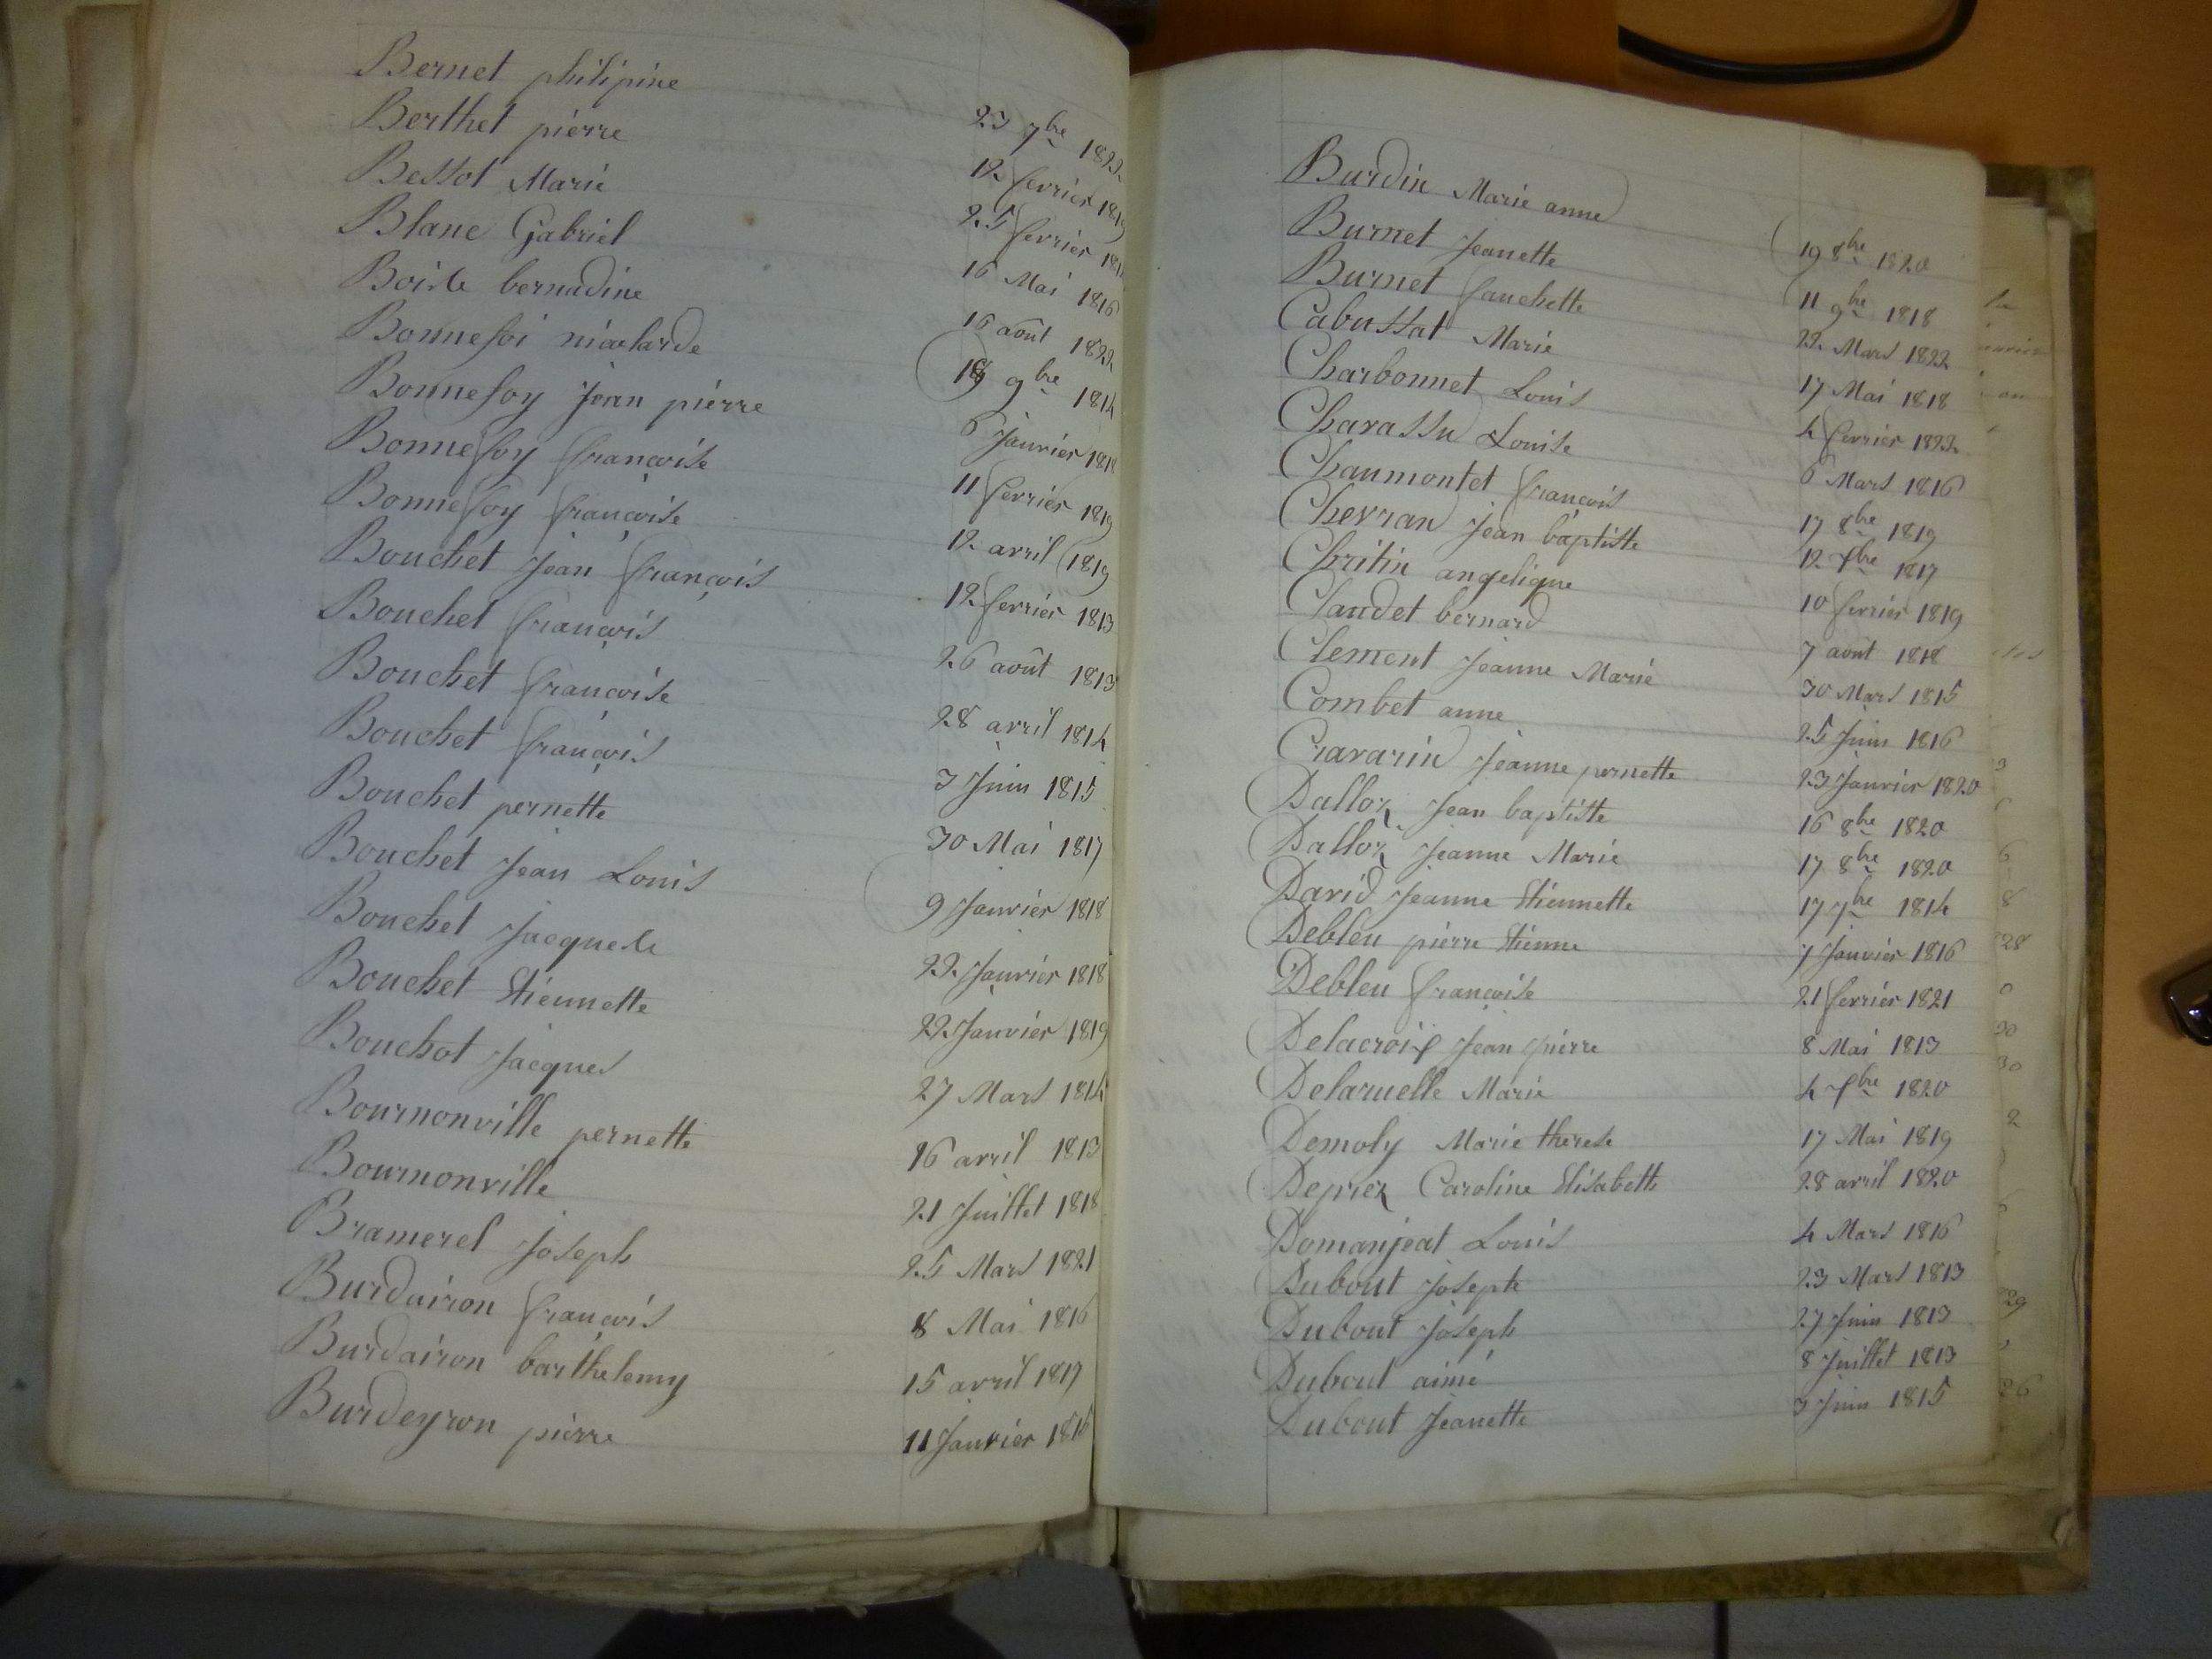 Bernet philipine 23 7bre 1822
Berthet pierre 12 fevrier 1819
Bessot Marie 25 fevrier
Blanc Gabriel 16 Mai 1816
Boisse bernadine 16 août 1822
Bonnefoi nicolarde 18 9bre 1814
Bonnefoy jean pierre 6 Janvier 1818
Bonnefoy françoise 11 fevrier 1819
Bonnefoy françoise 12 avril 1819
Bouchet jean françois 12 fevrier 1813
Bouchet françois 26 août 1813
Bouchet françoise 28 avril 1814
Bouchet françois 3 Juin 1815
Bouchet pernette 30 Mai 1817
Bouchet jean Louis 9 Janvier 1818
Bouchet jacquese 22 Janvier 1818
Bouchet Etiennette 22 Janvier 1819
Bouchot jacques 27 Mars 1814
Bournonville pernette 16 avril 1813
Bournonville 21 Juillet 1818
Bramerel joseph 25 Mars 1821
Burdairon françois 8 Mai 1816
Burdairon barthelemy 15 avril 1817
Burdeyron pierre 11 Janvier 1816
Burdin Marie anne 19 8bre 1820
Burnet jeanette 11 9bre 1818
Burnet fanchette 22 Mars 1822
Cabussat Marie 17 Mai 1818
Charbonnet Louis 4 fevrier 1822
Charassu Louise 6 Mars 1816
Chaumontet françois 17 8bre 1819
Chevran jean baptiste 12 Xbre 1817
Chritin angelique 10 fevrier 1819
Claudet bernard 7 août 1818
Clement jeanne Marie 30 Mars 1815
Combet anne 25 Juin 1816
Cravarin jeanne pernette 23 Janvier 1820
Dalloz jean baptiste 16 8bre 1820
Dalloz jeanne Marie 17 8bre 1820
David jeanne Etiennette 17 7bre 1814
Debleu pierre Etienne 7 Janvier 1816
Debleu françoise 21 fevrier 1821
Delacroix jean pierre 8 Mai 1813
Delaruelle Marie 4 Xbre 1820
Demoly Marie therese 17 Mai 1819
Deprez Caroline Elisabeth 28 avril 1820
Domanjeat Louis 4 Mars 1816
Dubout joseph 23 Mars 1813
Dubout joseph 27 Juin 1813
Dubout aimé 8 Juillet 1813
Dubout jeanette 3 Juin 1815